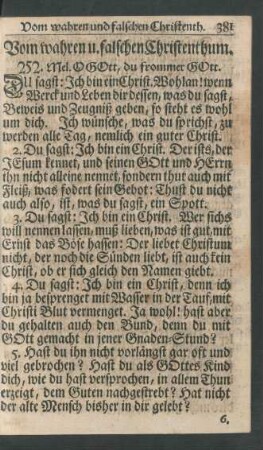 Vom wahren und falschen Christenth. 381
Vom wahren u. falschen Christenthum.
252. Mel. O GOtt, du frommer GOtt.
DU sagst: Ich bin ein Christ. Wohlan! wenn
Werck und Leben dir dessen, was du sagst,
Beweis und Zeugniß geben, so steht es wohl
um dich. Ich wünsche, was du sprichst, zu
werden alle Tag, nemlich ein guter Christ.
2. Du sagst: Ich bin ein Christ. Der ists, der
JEsum kennet, und seinen GOtt und HErrn
ihn nicht alleine nennet, sondern thut auch mit
Fleiß, was fodert sein Gebot: Thust du nicht
auch also, ist, was du sagst, ein Spott.
3. Du sagst: Ich bin ein Christ. Wer sichs
will nennen lassen, muß lieben, was ist gut, mit
Ernst das Böse hassen: Der liebet Christum
nicht, der noch die Sünden liebt, ist auch kein
Christ, ob er sich gleich den Namen giebt.
4. Du sagst: Ich bin ein Christ, denn ich
bin ja besprenget mit Wasser in der Tauf, mit
Christi Blut vermenget. Ja wohl! hast aber
du gehalten auch den Bund, denn du mit
GOtt gemacht in jener Gnaden-Stund?
5. Hast du ihn nicht vorlängst gar oft und
viel gebrochen? Hast du als GOttes Kind
dich, wie du hast versprochen, in allem Thun
erzeigt, dem Guten nachgestrebt? Hat nicht
der alte Mensch bisher in dir gelebt?
6.